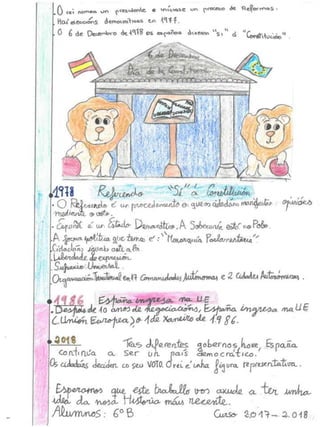 O rei nomea un presidente e iníciase un proceso de Reformas.
Hai eleccións democráticas en 1977.
O 6 de Decembro de 1978 os españois dixeron "Si" á "Constitución".
6 de Decembro
Día de la Constitución
1978 Referendo "Si" á Constitución
- O Referendo é un procedemento o que os cidadáns manifestan opinións
mediante o voto.
- España é un Estado Democrático. A Soberanía está no Pobo.
- A forma política que temos é: "Monarquía Parlamentaria"
- Cidadáns iguais ante a lei
- Liberdade de expresión.
- Sufraxio Universal.
- Organización Territorial en 17 Comunidades Autónomas e 2 Cidades Autónomas.
1986 España ingresa na UE
. Despois de 10 anos de negociacións, España ingresa na UE
(Unión Europea) o 1 de Xaneiro de 1986.
2018 Tras diferentes gobernos, hoxe, España
continúa a ser un país democrático.
Os cidadáns deciden co seu VOTO. O rei é unha figura representativa.
Esperamos que este traballo vos axude a ter unha
idea da nosa Historia máis recente.
Alumnos: 6º B Curso 2017-2018